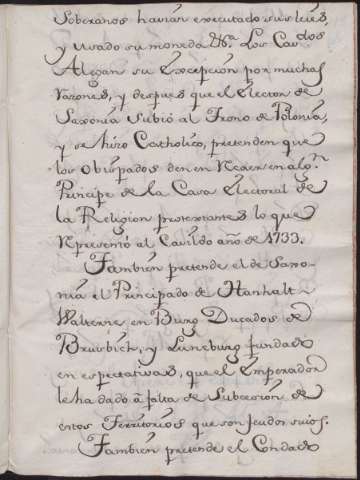 Soberanos havian executado sus leies,
y usado su moneda &ª. Los Cavdos
Alegan su Excepcion por muchas
razones, y despues que el Elector de
Saxonia subió al Trono de Polonia,
y se hizo Catholico, pretenden que
los Obispados den en
Principe de la Casa Electoral de
la Religion protestantes lo que
Representó al Cavildo año de 1733.
Tambien pretende el de Saxo-
nia el Principado de Hanhalt
en Burg Ducados de
y Luneburg fundado
en espectativas, que el Emperador
le ha dado à falta de Subcesion de
estos Territorios que son feudos suios.
Tambien pretende el Condado